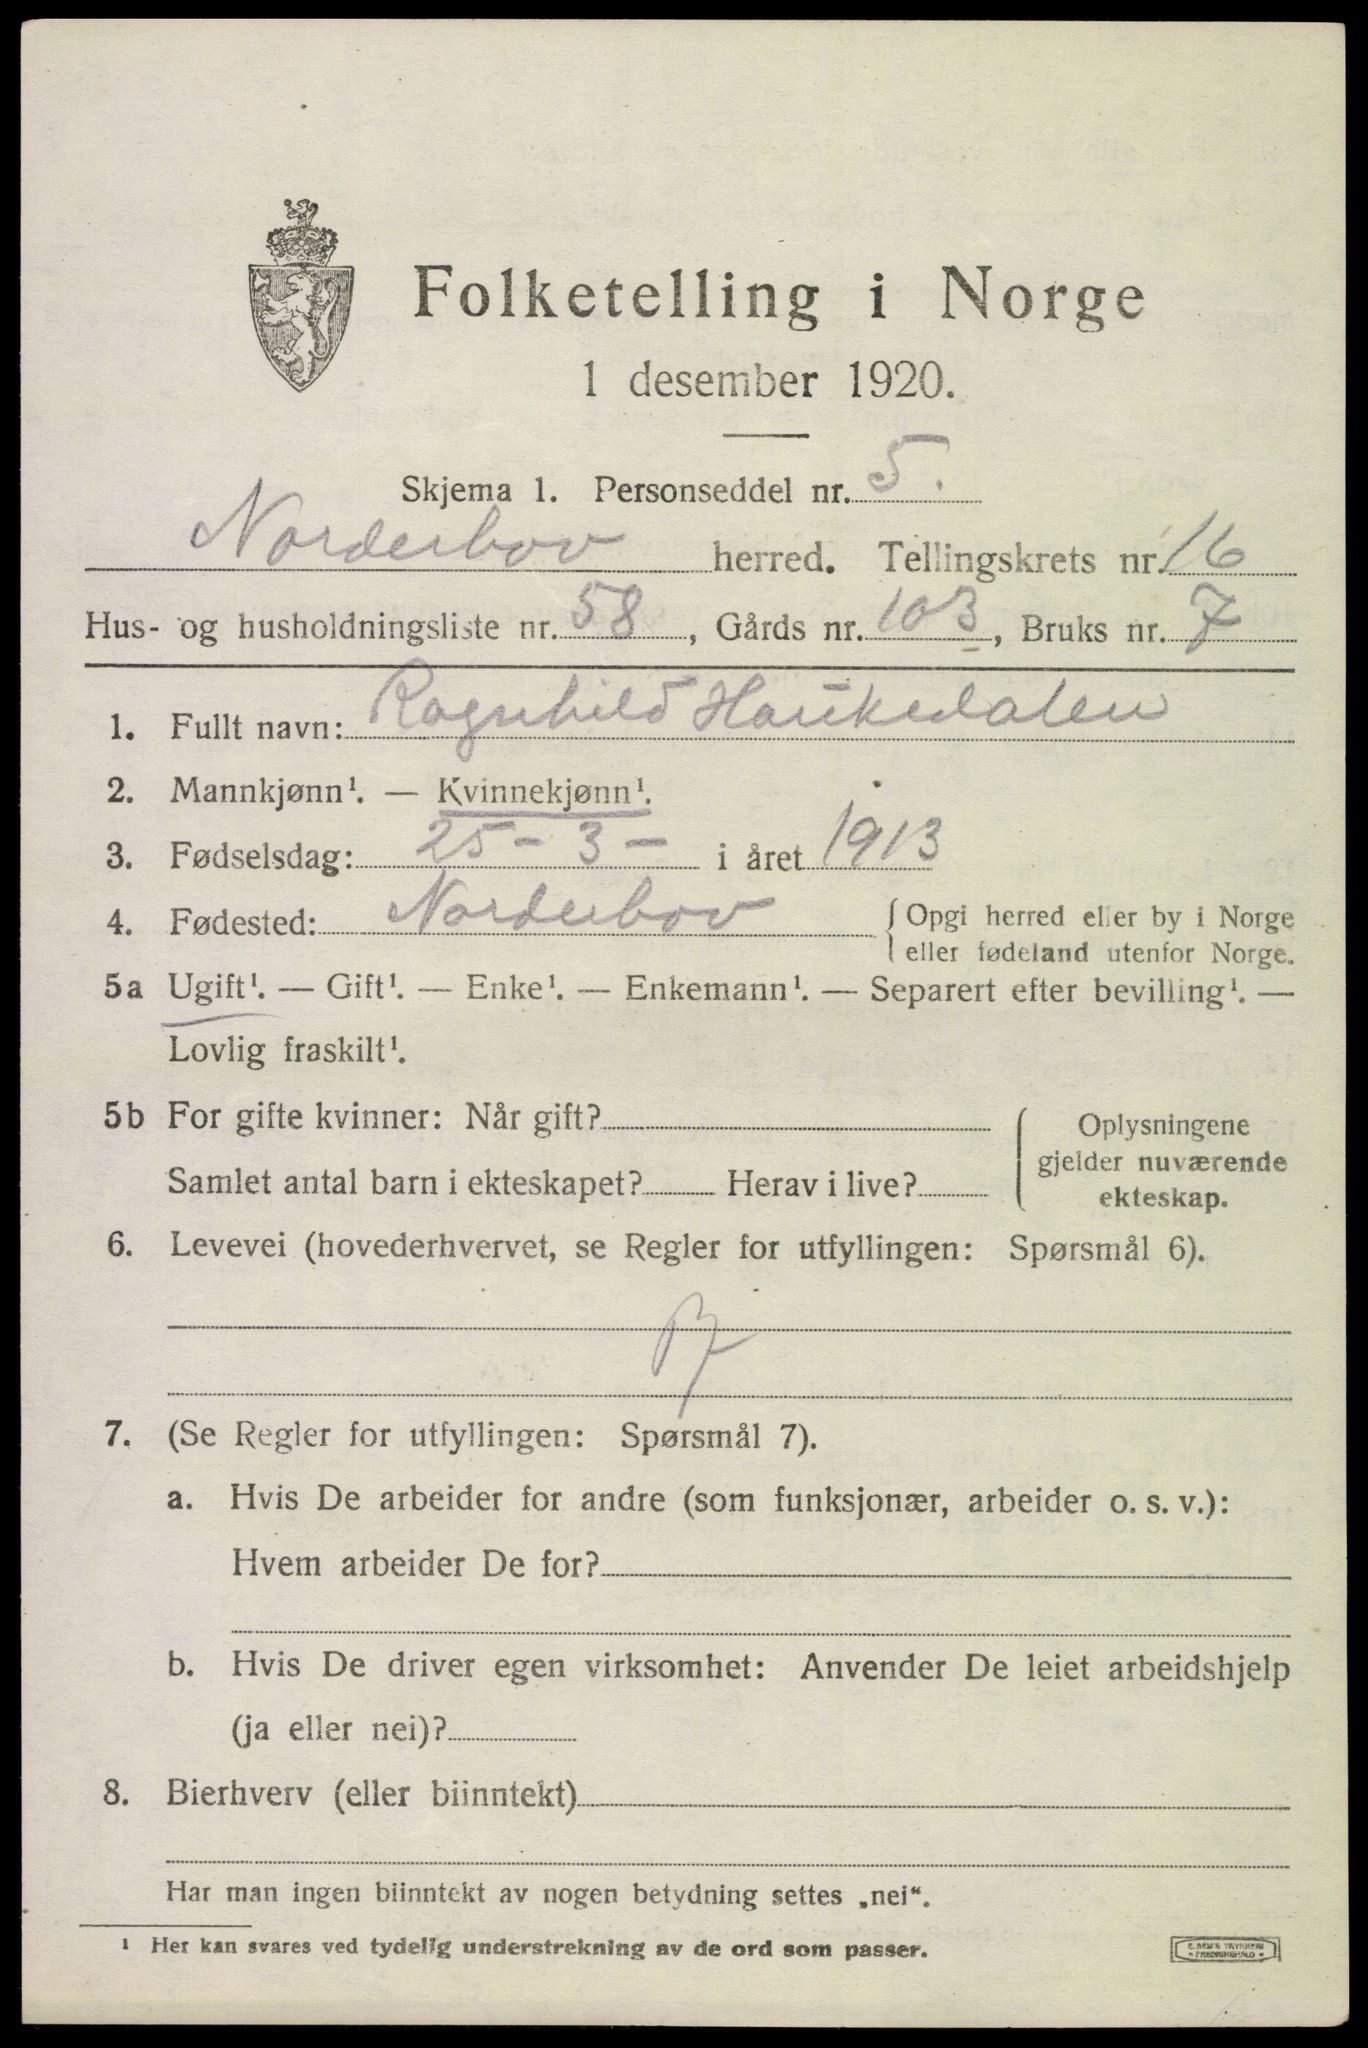 Folketelling i Norge
1 desember 1920.
Skjema 1. Personseddel nr. 5.
Norderhov herred. Tellingskrets nr. 16
Hus- og husholdningsliste nr. 58, Gårds nr. 103, Bruks nr. 7
1. Fullt navn: Ragnhild Haukedalen
2. Mannkjønn¹. — Kvinnekjønn¹.
3. Fødselsdag: 25 - 3 - i året 1913
4. Fødested: Norderhov { Opgi herred eller by i Norge
eller fødeland utenfor Norge.
5a Ugift¹. — Gift¹. — Enke¹. — Enkemann¹. — Separert efter bevilling¹. —
Lovlig fraskilt¹.
5b For gifte kvinner: Når gift? { Oplysningene
gjelder nuværende
Samlet antal barn i ekteskapet? Herav i live? ekteskap.
6. Levevei (hovederhvervet, se Regler for utfyllingen: Spørsmål 6).
7. (Se Regler for utfyllingen: Spørsmål 7).
a. Hvis De arbeider for andre (som funksjonær, arbeider o. s. v.):
Hvem arbeider De for?
b. Hvis De driver egen virksomhet: Anvender De leiet arbeidshjelp
(ja eller nei)?
8. Bierhverv (eller biinntekt)
Har man ingen biinntekt av nogen betydning settes „nei“.
¹ Her kan svares ved tydelig understrekning av de ord som passer.
E. SEM'S TRYKKERI
FREDRIKSHALD